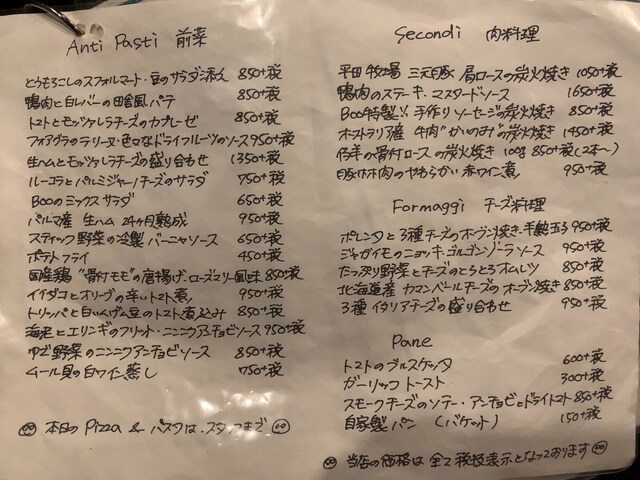 Anti Pasti 前菜
とうもろこしのスフォルマート・豆のサラダ添え 850+税
鴨肉と白レバーの田舎風パテ 850+税
トマトとモッツァレラチーズのカプレーゼ 850+税
フォアグラのテリーヌ・色々なドライフルーツのソース 950+税
生ハムとモッツァレラチーズの盛り合わせ 1350+税
ルーコラとパルミジャーノチーズのサラダ 750+税
Booのミックスサラダ 650+税
パルマ産 生ハム 24ヶ月熟成 950+税
スティック野菜の冷製 バーニャソース 650+税
ポテトフライ 450+税
国産鶏"骨付モモ"の唐揚げ・ローズマリー風味 850+税
イイダコとオリーブの辛いトマト煮 950+税
トリッパと白いんげん豆のトマト煮込み 850+税
海老とエリンギのフリット・ニンニクアンチョビソース 950+税
ゆで野菜のニンニクアンチョビソース 850+税
ムール貝の白ワイン蒸し 750+税
本日のPizza & パスタは、スタッフまで
Secondi 肉料理
平田牧場 三元豚 肩ロースの炭火焼き 1050+税
鴨肉のステーキ・マスタードソース 1650+税
Boo特製 手作りソーセージの炭火焼き 850+税
オーストラリア産 牛肉"かいのみ"の炭火焼き 1450+税
仔羊の骨付ロースの炭火焼き 100g 850+税(2本〜)
豚ホホ肉のやわらかい赤ワイン煮 950+税
Formaggi チーズ料理
ポレンタと3種チーズのオーブン焼き・半熟玉子 950+税
ジャガイモのニョッキ・ゴルゴンゾーラソース 950+税
たっぷり野菜とチーズのとろとろオムレツ 850+税
北海道産 カマンベールチーズのオーブン焼き 850+税
3種イタリアチーズの盛り合わせ 950+税
Pane
トマトのブルスケッタ 600+税
ガーリックトースト 300+税
スモークチーズのソテー・アンチョビとドライトマト 850+税
自家製パン (バケット) 150+税
当店の価格は全て税抜表示となっております